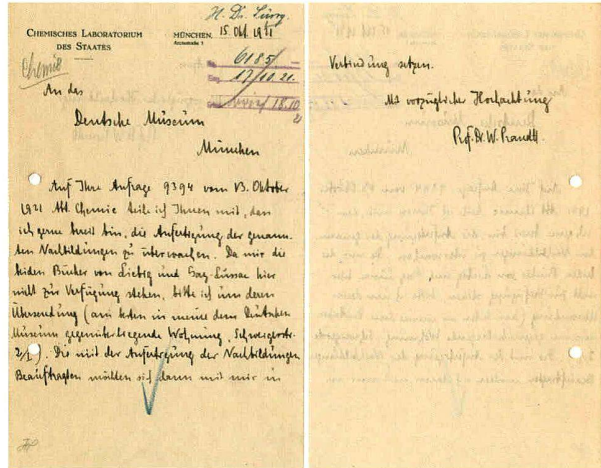 H. Dr. Fürg.
CHEMISCHES LABORATORIUM
DES STAATES
MÜNCHEN, 15 Okt. 1921
Arcisstraße 1
6185/
17/10.21.
18.10
Chemie
An das
Deutsche Museum
München
Auf Ihre Anfrage 9394 vom 13. Oktober
1921 Abt. Chemie teile ich Ihnen mit, dass
ich gerne bereit bin, die Anfertigung der genann-
ten Nachbildungen zu überwachen. Da mir die
beiden Bücher von Liebig und Gay-Lussac hier
nicht zur Verfügung stehen, bitte ich um deren
Übersendung (am besten in meine dem Deutschen
Museum gegenüberliegende Wohnung, Schweigerstr.
2/1). Die mit der Anfertigung der Nachbildungen
Beauftragten möchten sich dann mit mir in
Verbindung setzen.
Mit vorzüglicher Hochachtung
Prof. Dr. W. Prandtl.